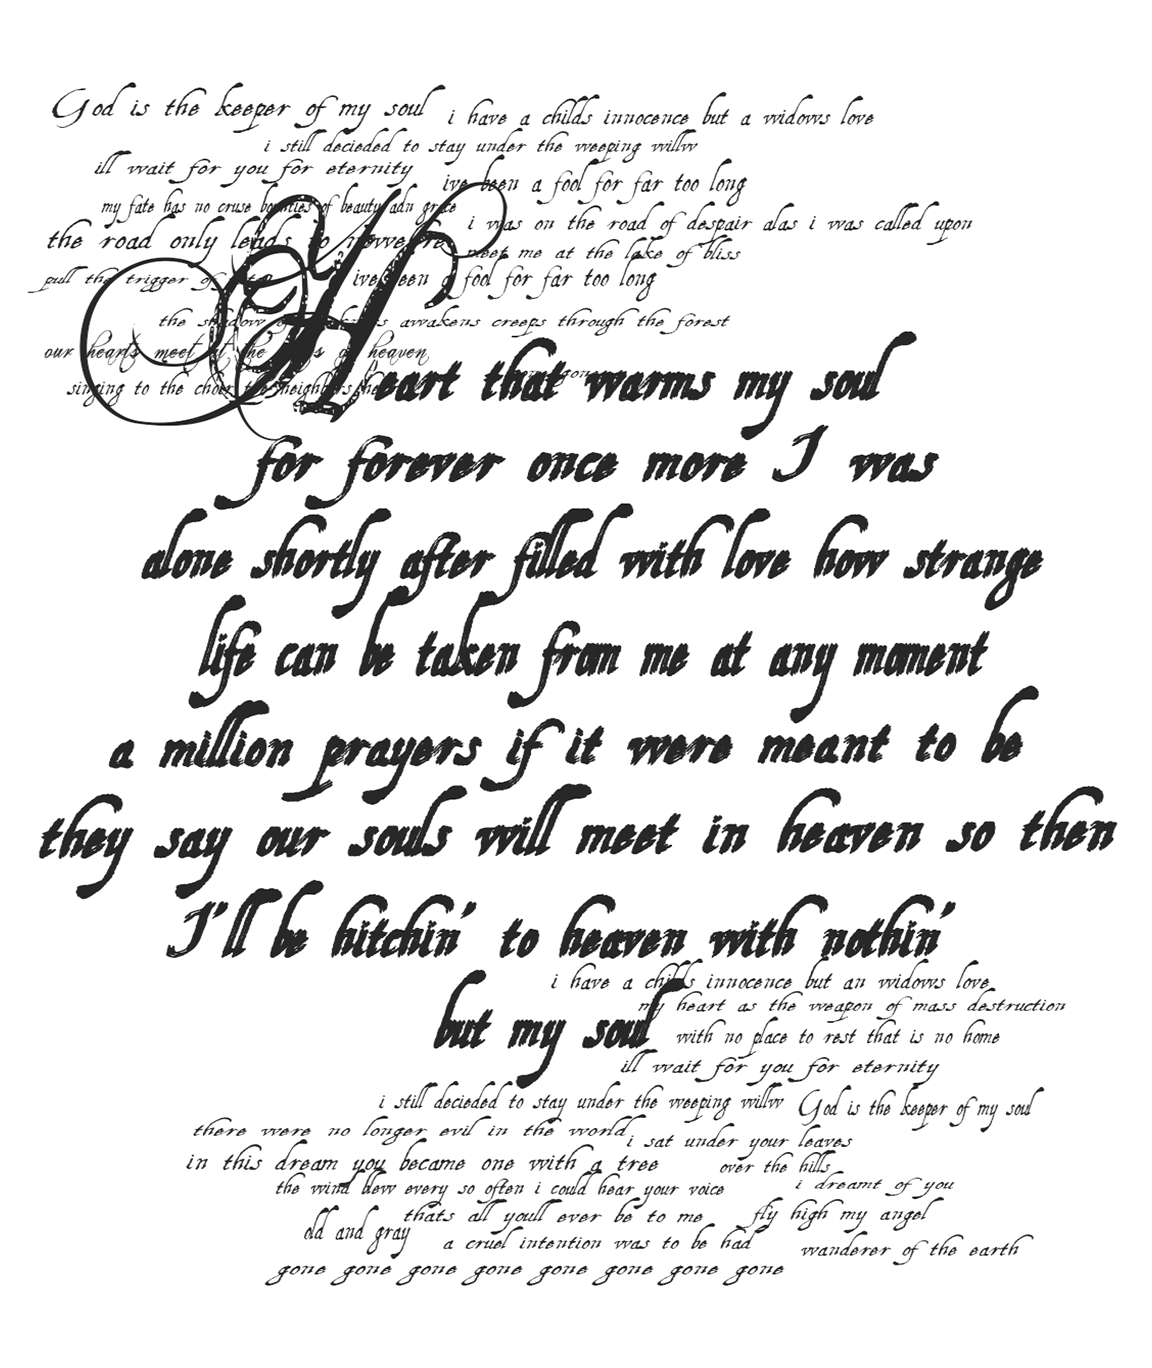 God is the keeper of my soul i have a childs innocence but a widows love
i still decieded to stay under the weeping willw
ill wait for you for eternity
ive been a fool for far too long
my fate has no cruse bounties of beauty adn grace
i was on the road of despair alas i was called upon
the road only leads to nowehre
meet me at the lake of bliss
pull the trigger of
ive been a fool for far too long
the shadow awakens creeps through the forest
our hearts meet at the of heaven
singing to the choir the neighbors
Heart that warms my soul
for forever once more I was
alone shortly after filled with love how strange
life can be taken from me at any moment
a million prayers if it were meant to be
they say our souls will meet in heaven so then
I'll be hitchin' to heaven with nothin'
but my soul
i have a childs innocence but an widows love
my heart as the weapon of mass destruction
with no place to rest that is no home
ill wait for you for eternity
i still decieded to stay under the weeping willw God is the keeper of my soul
there were no longer evil in the world
i sat under your leaves
in this dream you became one with a tree over the hills
the wind blew every so often i could hear your voice i dreamt of you
thats all youll ever be to me fly high my angel
old and gray
a cruel intention was to be had wanderer of the earth
gone gone gone gone gone gone gone gone